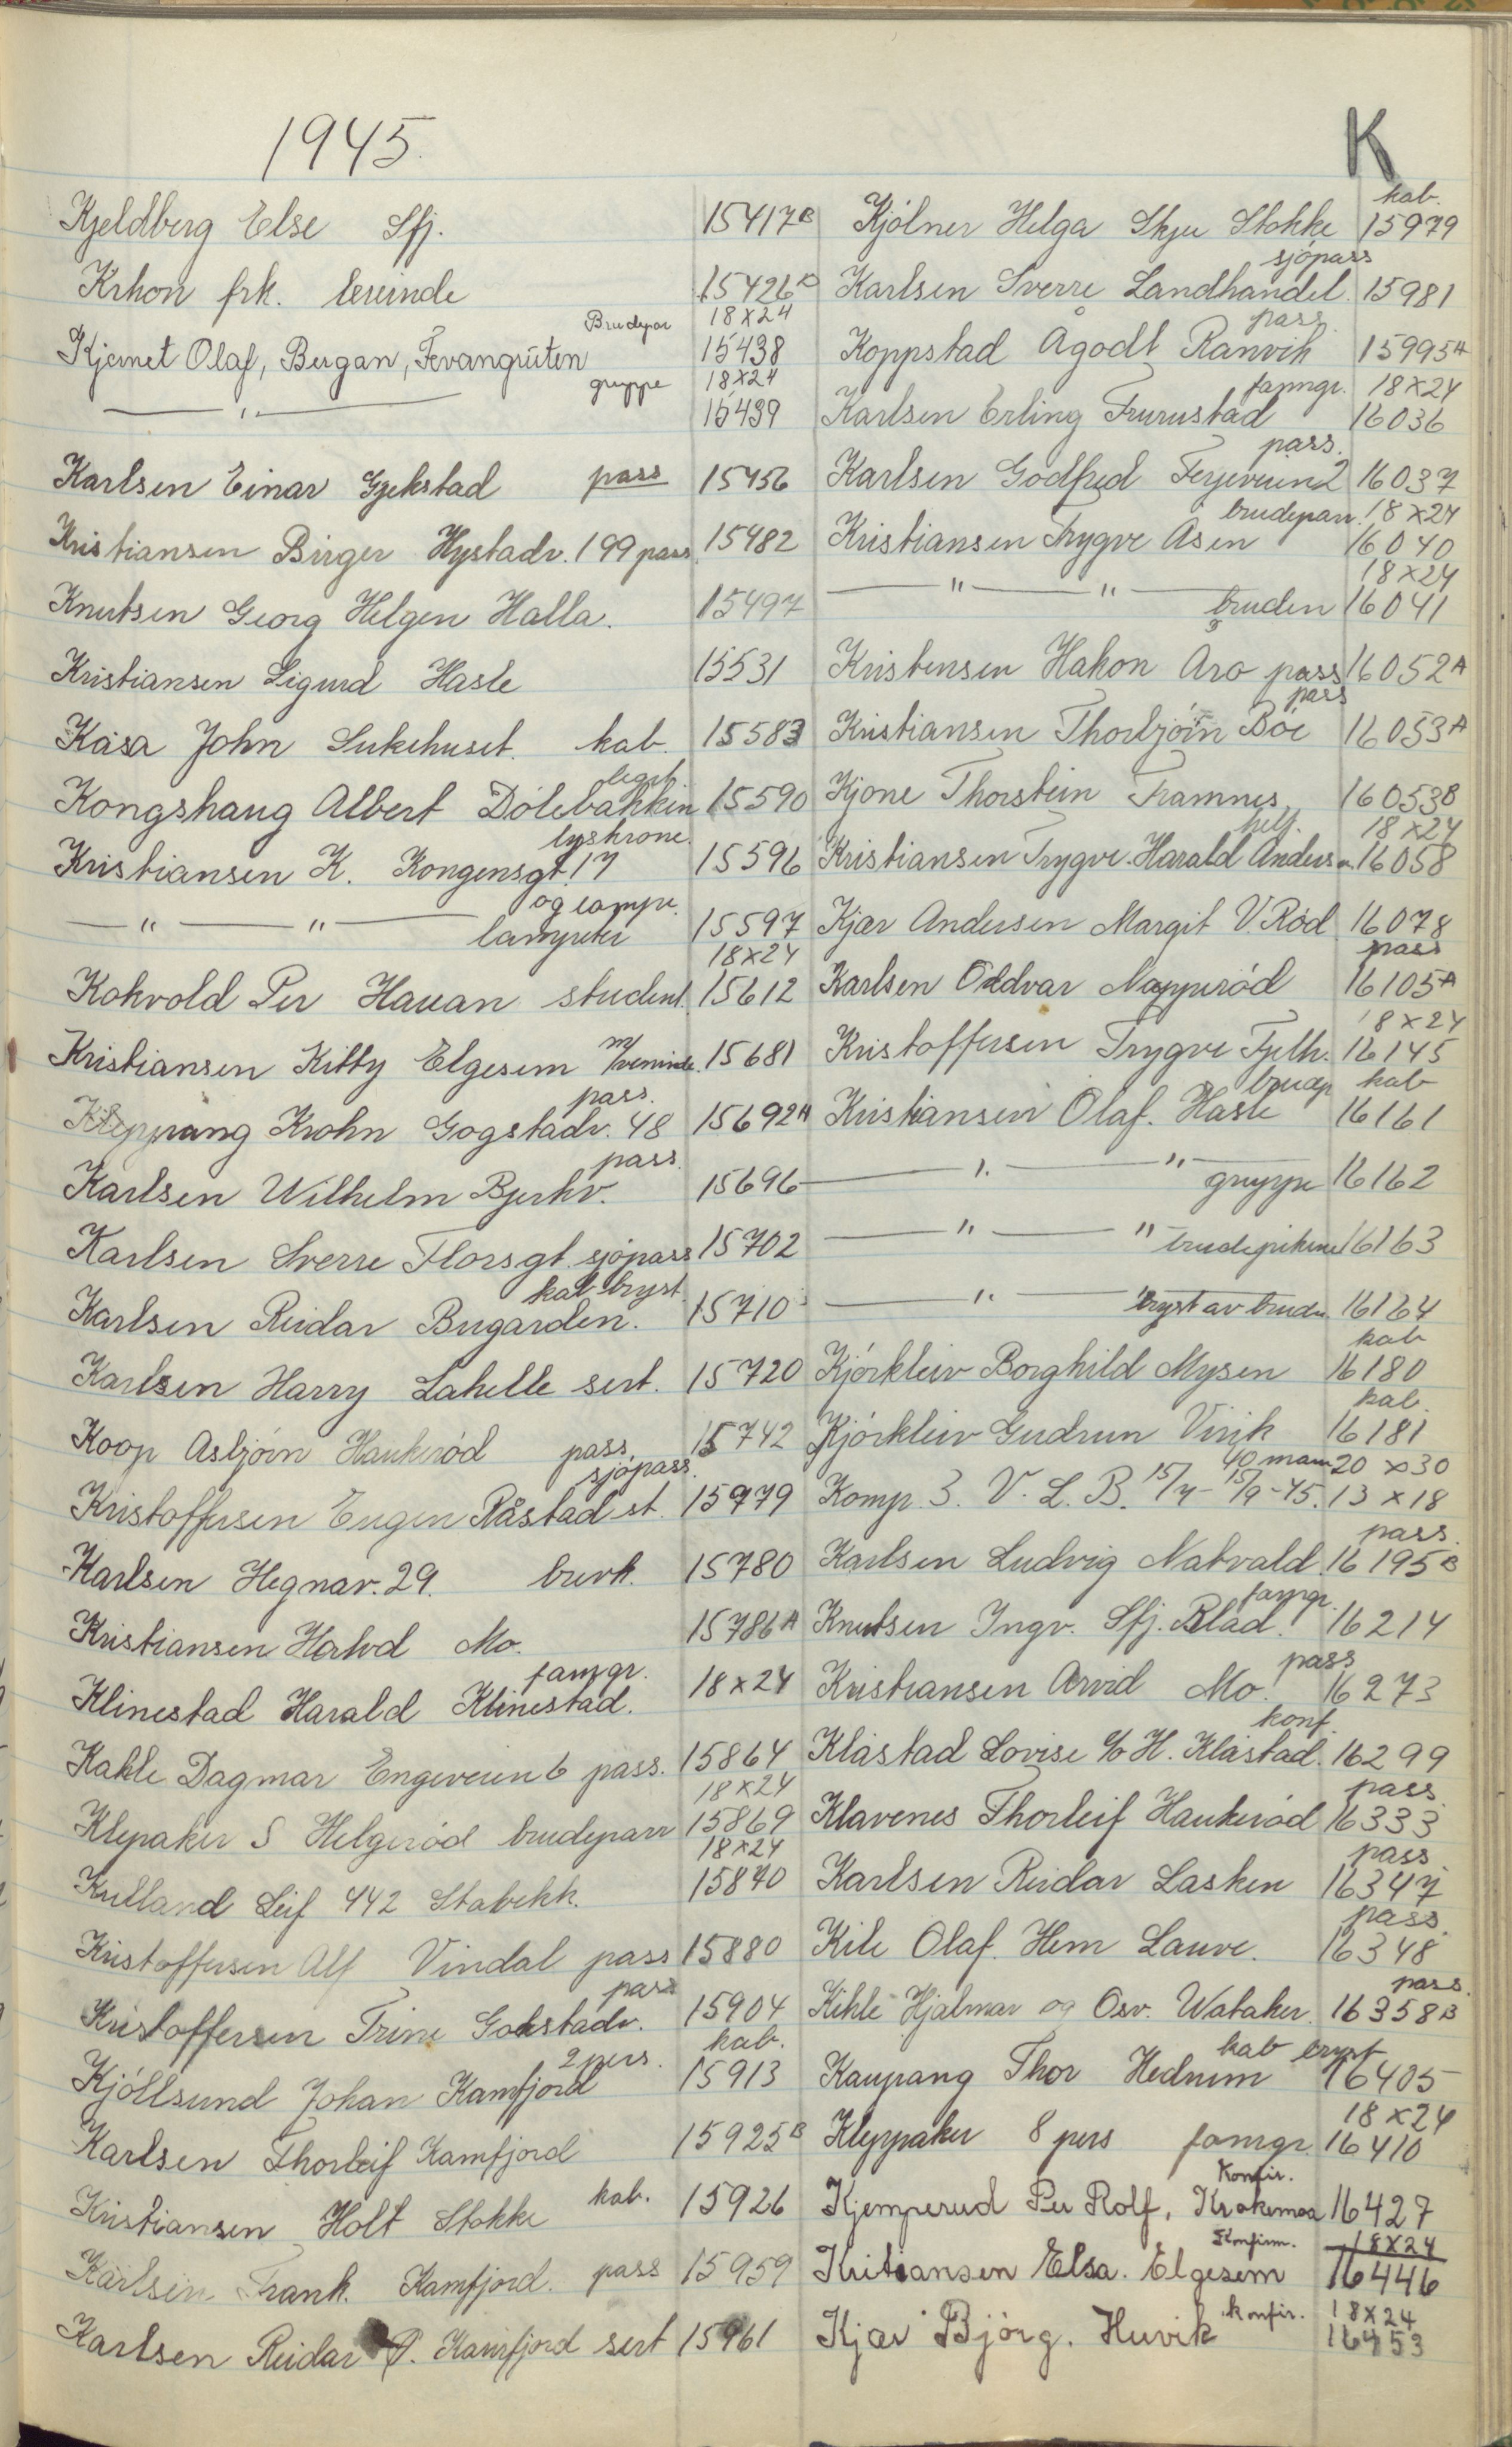 1945.
K
Kjeldberg Else Sfj. 15417B
Krhon frk. 15426B
Brudepar 18x24
Kjernet Olaf, Bergan, Tevangruten 15438
gruppe 18x24
— " — 15439
Karlsen Einar Gjekstad pass 15456
Kristiansen Birger Hystadv. 199 pass 15482
Knutsen Georg Helgen Halla. 15497
Kristiansen Sigurd Hasle 15531
Kåsa John Sukehuset. kab. 15583
legit.
Kongshaug Albert Dölebakken 15590
lyskrone.
Kristiansen K. Kongensgt. 17 15596
og lampe.
— " — " — lampeter 15597
18x24
Kokvold Per Hauan student. 15612
Kristiansen Kitty Elgesem m/veninde. 15681
pass.
Kleppang Krohn Gogstadv. 48 15692A
pass.
Karlsen Wilhelm Bjerkv. 15696
Karlsen Sverre Florsgt. sjöpass 15702
kab bryst.
Karlsen Reidar Bugarden. 15710
Karlsen Harry Lahelle sert. 15720
Koop Asbjörn Haukeröd pass. 15742
sjöpass.
Kristoffersen Eugen Råstad st. 15779
Karlsen Hegnav. 29. brevk. 15780
Kristiansen Halvd Mo. 15786A
famgr.
Klinestad Harald Klinestad. 18x24
Kahle Dagmar Engeveien 6 pass. 15864
18x24
Klepaker S Helgeröd brudeparr 15869
18x24
Kulland Leif 442 Stabekk. 15870
Kristoffersen Alf Vindal pass 15880
pass
Kristoffersen Trine Gokstadv. 15904
2 pers. kab.
Kjöllsund Johan Kamfjord 15913
Karlsen Thorleif Kamfjord 15925B
Kristiansen Holt Stokke kab. 15926
Karlsen Frank. Kamfjord. pass 15959
Karlsen Reidar P. Kamfjord sert 15961
kab.
Kjölner Helga Skju Stokke 15979
sjöpass
Karlsen Sverre Landhandel. 15981
pass.
Koppstad Ågodt Ranvik 15995A
famgr. 18x24
Karlsen Erling Furustad 16036
pass.
Karlsen Godfred Ferjeveien 2 16037
brudeparr. 18x24
Kristiansen Trygve Åsen 16040
18x24
— " — " — bruden 16041
Kristensen Hakon Åro pass 16052A
pass
Kristiansen Thorbjörn Böe 16053A
Kjone Thorstein Framnes 16053B
18x24
Kristiansen Trygve. Harald Anders 16058
Kjær Andersen Margit V. Röd 16078
pass
Karlsen Oddvar Napperöd 16105A
18x24
Kristoffersen Trygve Fjelh. 16145
brudep kab
Kristiansen Olaf. Hasle 16161
— " — " — gruppe 16162
— " — " brudepikene 16163
— " — bryst av bruden. 16164
kab
Kjörkleiv Borghild Mysen 16180
kab.
Kjörkleiv Gudrun Virik 16181
40 mann 20 x 30
Komp. 3. V. L. B. 15/4 - 15/9 - 45. 13 x 18
pass.
Karlsen Ludvig Natvald. 16195B
famgr.
Knutsen Ingv. Sfj. Blad. 16214
pass
Kristiansen Arvid Mo. 16273
konf.
Klåstad Lovise c/o H. Klåstad. 16299
pass.
Klavenes Thorleif Haukeröd 16333
pass
Karlsen Reidar Lasken 16347
pass.
Kile Olaf. Hem Lauve. 16348
pass.
Kihle Hjalmar og Osv. Wataker. 16358B
kab bryst
Kaupang Thor Hedrum 16405
18x24
Kleppaker 8 pers famgr. 16410
Konfir.
Kjemperud Per Rolf, Krakemoa 16427
Konfirm. 18x24
Kritiansen Elsa. Elgesem 16446
konfir. 18x24
Kjær Björg. Huvik 16453